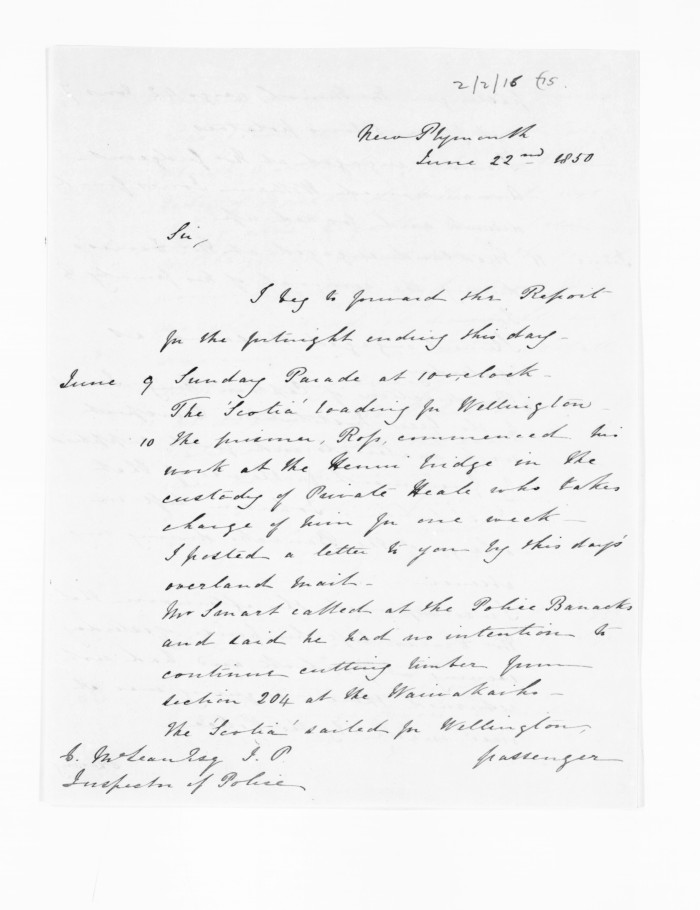 2/2/16 (15.
New Plymouth
June 22nd 1850
Sir,
I beg to forward the Report
for the fortnight ending this day -
June 9 Sunday Parade at 10 o,clock -
The 'Scotia' loading for Wellington -
10 The prisoner, Ross, commenced his
work at the Henui bridge in the
custody of Private Heale who takes
charge of him for one week -
I posted a letter to you by this day's
overland mail -
Mr Smart called at the Police Barracks
and said he had no intention to
continue cutting timber from
section 204 at the Waiwakaiho -
The 'Scotia' sailed for Wellington,
passenger
McLean Esq J. P
Inspector of Police